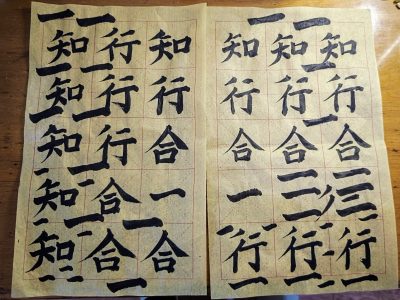 知行合三行
知行合三行
知行合一行
知行合一合
行行行合合
知知知知知